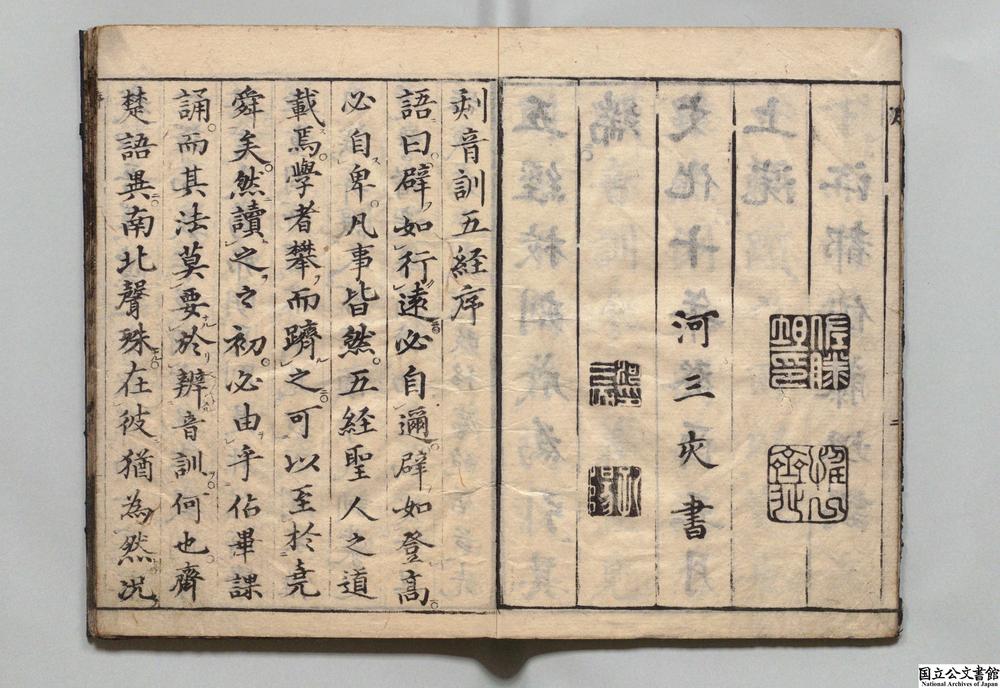 佐藤坦印
河三亥書
刻音訓五経序
語曰辟如行遠必自邇辟如登髙
必自卑凡事皆然五経聖人之道
載焉學者攀而躋之可以至於堯
舜矣然讀之〻初必由乎佔畢課
誦而其法莫要於辨音訓何也齊
楚語異南北聲殊在彼猶為然况
国立公文書館
National Archives of Japan